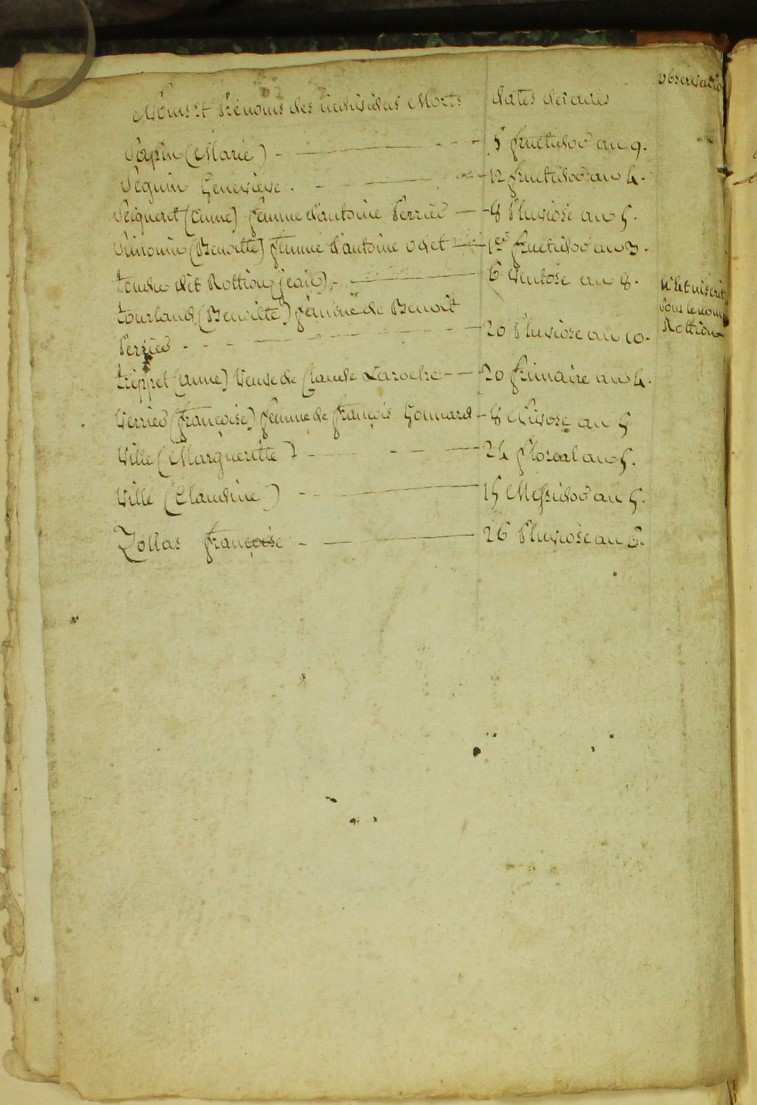 Noms et Prénoms des individus Morts dates des actes observatio
Sapin (Marie) 5 fructidor an 9.
Seguin Genevieve. 12 fructidor an 4.
Seignerit (anne) femme d'antoine Perrier 8 Pluviose an 5.
Simonin (Benoitte) femme d'antoine odet 1er fructidor an 3.
Tondu dit Rottion (jean) 6 Ventose an 8.
est inscrit
sous le nom
Rottion
Tourland (Benoitte) femme de Benoit
Perrier 20 Pluviose an 10.
Trippet (anne) Veuve de Claude Laroche 20 frimaire an 4.
Verrier (françoise) femme de françois Gonnard 8 Nivose an 5
Ville (Margueritte) 24 floreal an 5.
Ville (Claudine) 15 Messidor an 5.
Zollas françoise 26 Pluviose an 6.